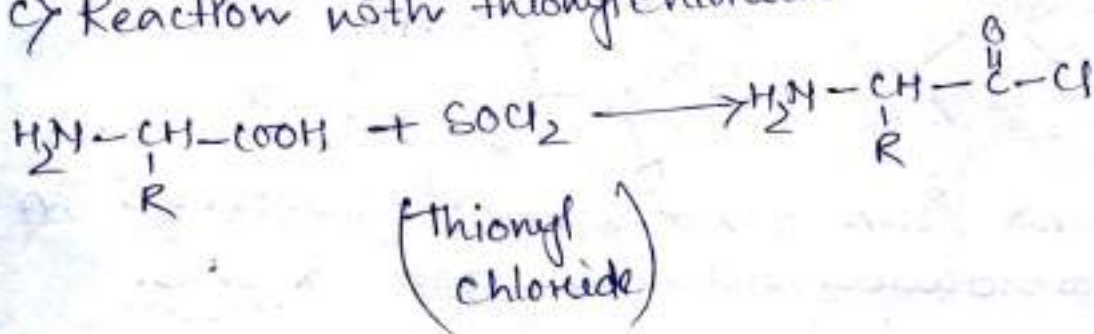 c) Reaction with thionyl chloride
H₂N-CH-COOH + SOCl₂ ⟶ H₂N-CH-C-Cl
O
R
R
(thionyl
chloreide)